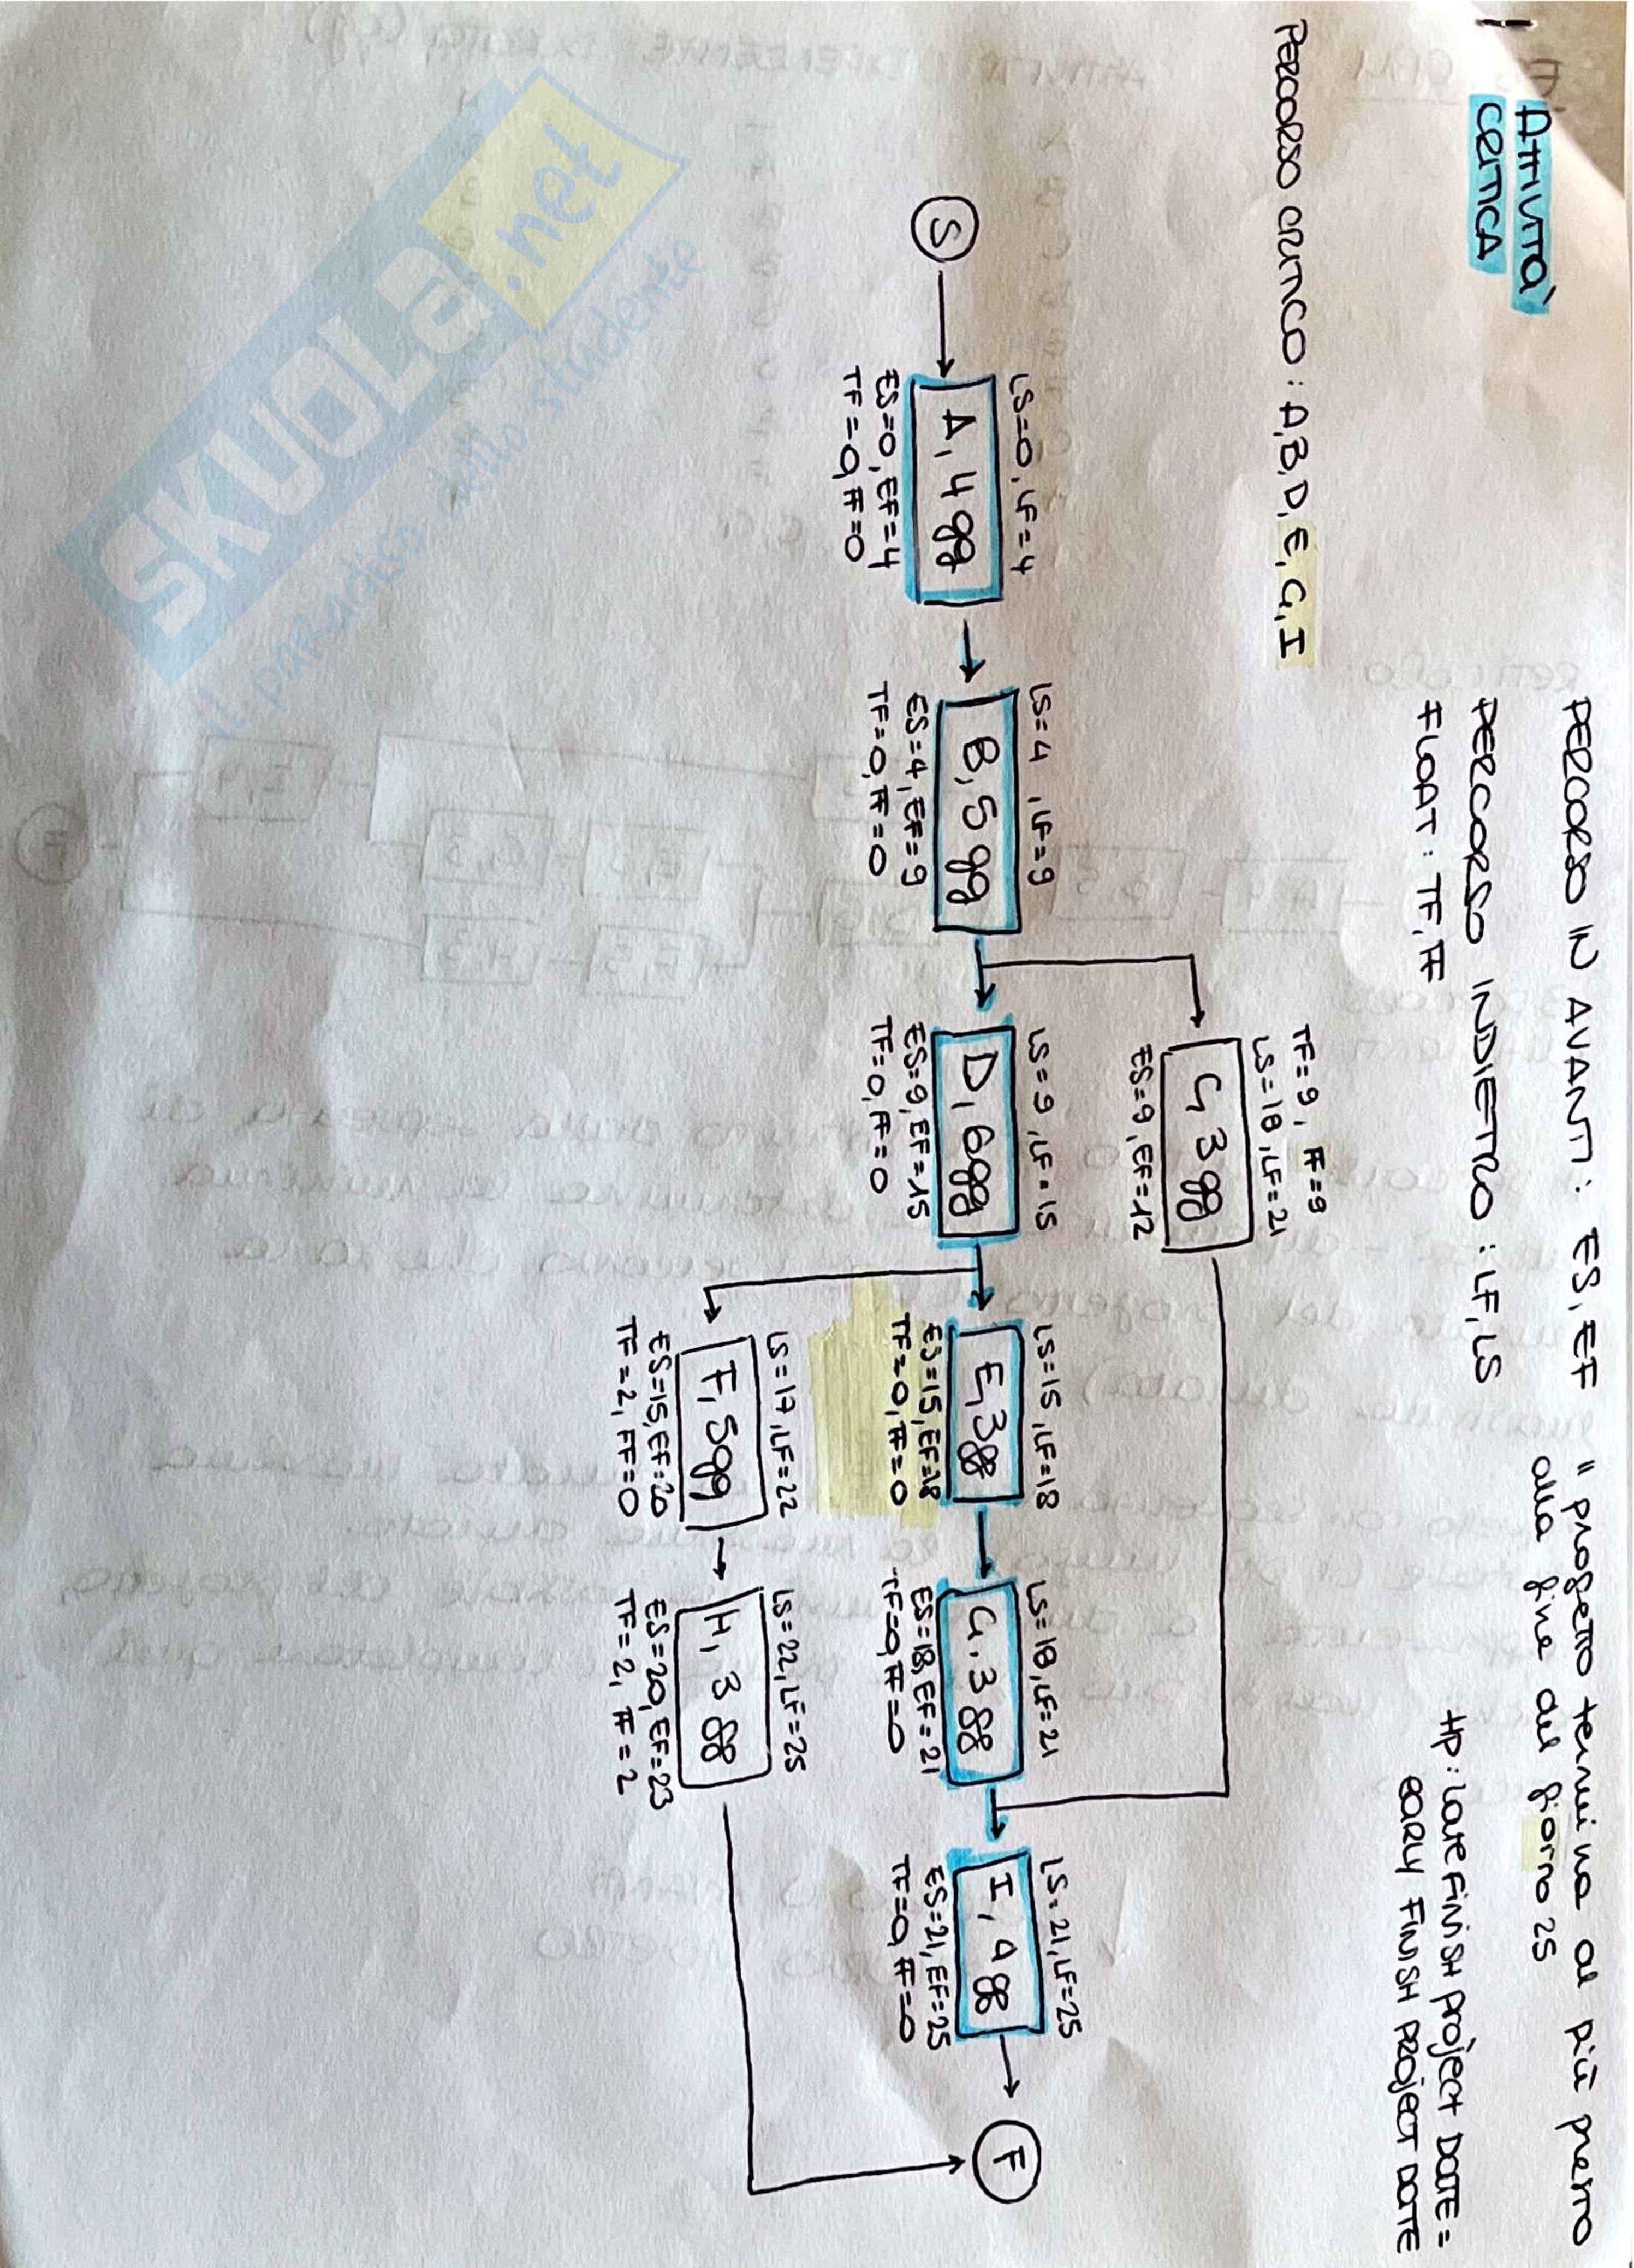 ATTIVITÀ
CRITICA
PERCORSO IN AVANTI : ES, EF
"progetto termina al più presto
alla fine del giorno 25
PERCORSO INDIETRO : LF, LS
FLOAT : TF, FF
HP: LATE FINISH PROJECT DATE =
EARLY FINISH PROJECT DATE
PERCORSO CRITICO : A, B, D, E, G, I
TF=9, FF=9
LS=18, LF=21
C, 3 gg
ES=9, EF=12
S
LS=0, LF=4
A, 4 gg
ES=0, EF=4
TF=0, FF=0
LS=4, LF=9
B, 5 gg
ES=4, EF=9
TF=0, FF=0
LS=9, LF=15
D, 6gg
ES=9, EF=15
TF=0, FF=0
LS=15, LF=18
E, 3gg
ES=15, EF=18
TF=0, FF=0
LS=18, LF=21
G, 3 gg
ES=18, EF=21
TF=0, FF=0
LS=21, LF=25
I, 4 gg
ES=21, EF=25
TF=0, FF=0
F
LS=17, LF=22
F, 5gg
ES=15, EF=20
TF=2, FF=0
LS=22, LF=25
H, 3 gg
ES=20, EF=23
TF=2, FF=2
SKUOLA.net
il paradiso dello studente